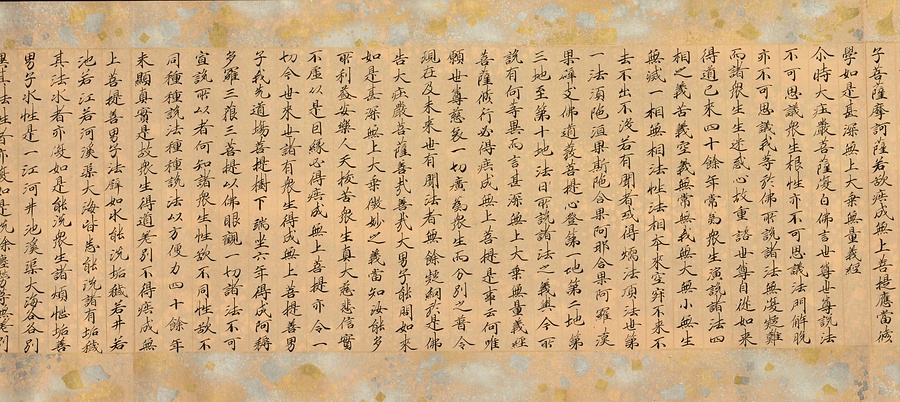 子菩薩摩訶薩若欲疾成無上菩提應當修
學如是甚深無上大乘無量義經
尒時大莊嚴菩薩復白佛言世尊世尊說法
不可思議衆生根性亦不可思議法門解脫
亦不可思議我等於佛所說諸法無復疑難
而諸衆生生迷惑心故重諮世尊自從如來
得道已來四十餘年常為衆生演說諸法四
相之義苦義空義無常無我無大無小無生
無滅一相無相法性法相本來空寂不來不
去不出不沒若有聞者或得煗法頂法世第
一法須陁洹果斯陁含果阿那含果阿羅漢
果辟支佛道發菩提心登第一地第二地第
三地至第十地往日所說諸法之義與今所
說有何等異而言甚深無上大乗無量義經
菩薩修行必得疾成無上菩提是事云何唯
願世尊慈哀一切廣為衆生而分別之普令
現在及未來世有聞法者無餘疑網於是佛
告大莊嚴菩薩善哉善哉大男子能問如來
如是甚深無上大乗微妙之義當知汝能多
所利益安樂人天拔苦衆生真大慈悲信實
不虛以是因緣必得疾成無上菩提亦令一
切今世來世諸有衆生得成無上菩提善男
子我先道場菩提樹下端坐六年得成阿耨
多羅三藐三菩提以佛眼觀一切諸法不可
宣說所以者何知諸衆生性欲不同性欲不
同種種說法種種說法以方便力四十餘年
未顯真實是故衆生得道差別不得疾成無
上菩提善男子法譬如水能洗垢穢若井若
池若江若河溪渠大海皆悉能洗諸有垢穢
其法水者亦復如是能洗衆生諸煩惱垢善
男子水性是一江河井池溪渠大海各各別
異其法性者亦復如是洗除塵勞等無差別